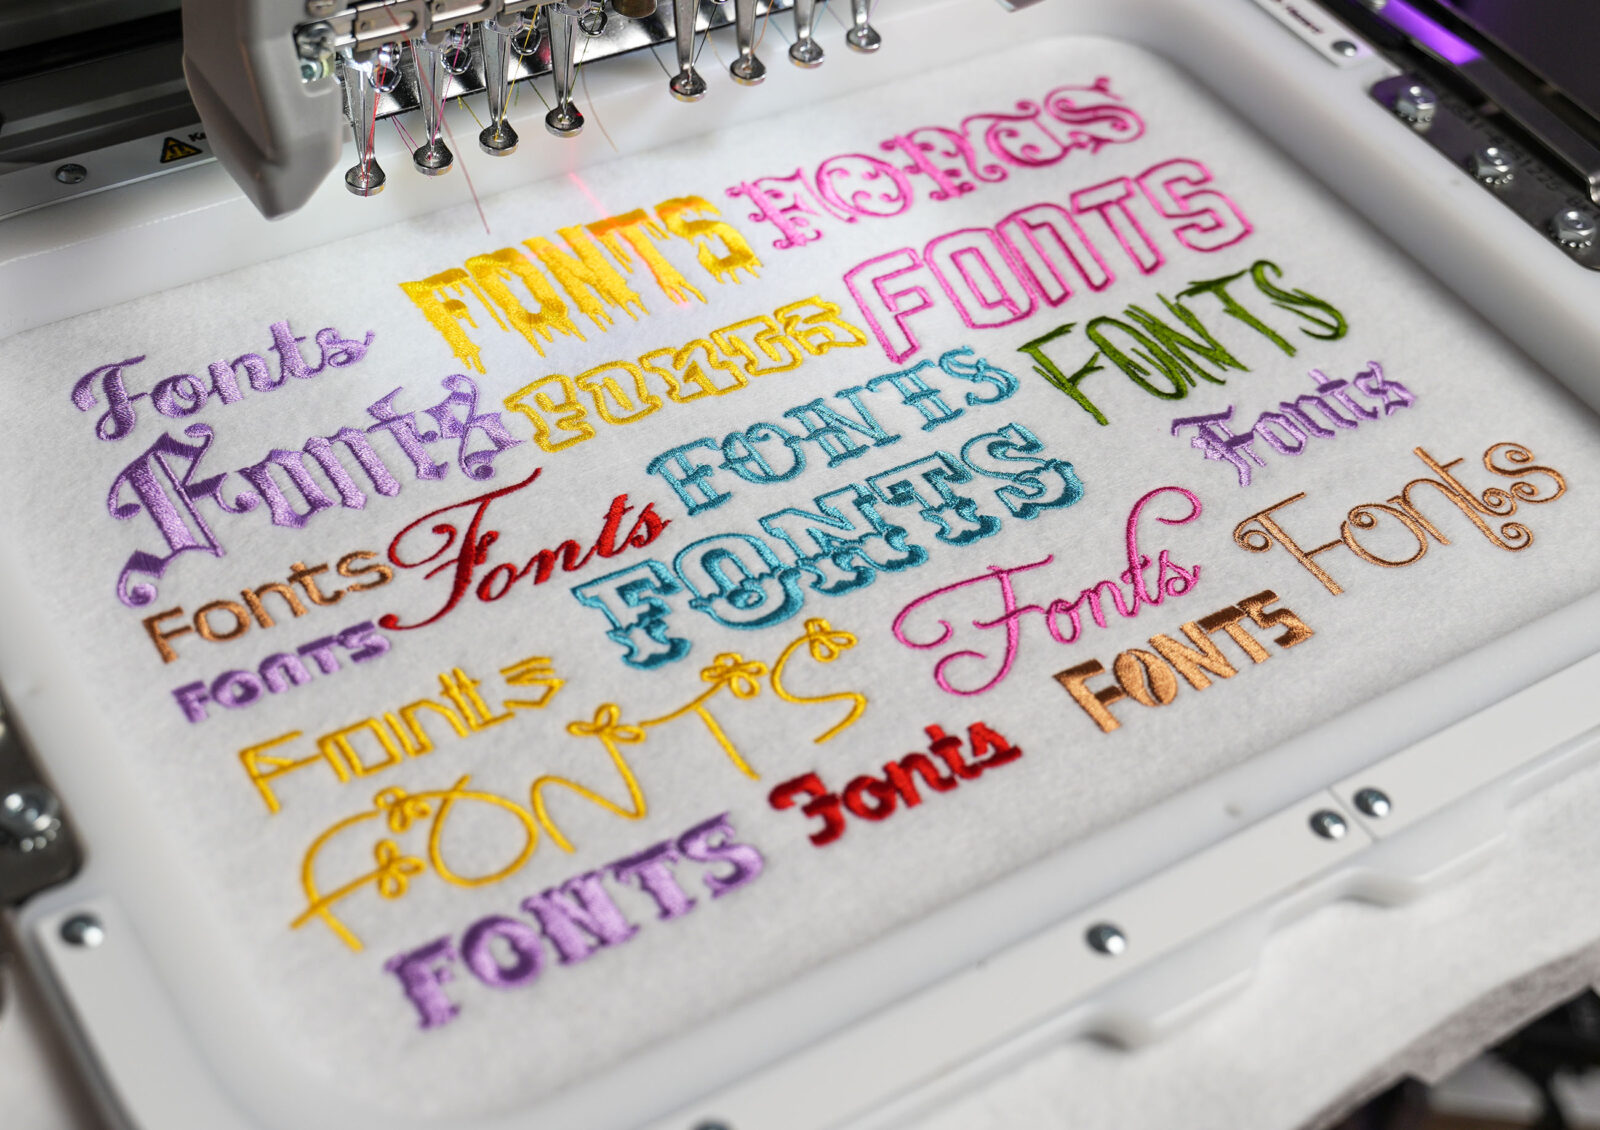 FONTS
FONTS
FONTS
Fonts
FONTS
FONTS
FONTS
Fonts
Fonts
Fonts
FONTS
Fonts
Fonts
Fonts
FONTS
FONTS
Fonts
FONTS
Fonts
FONTS